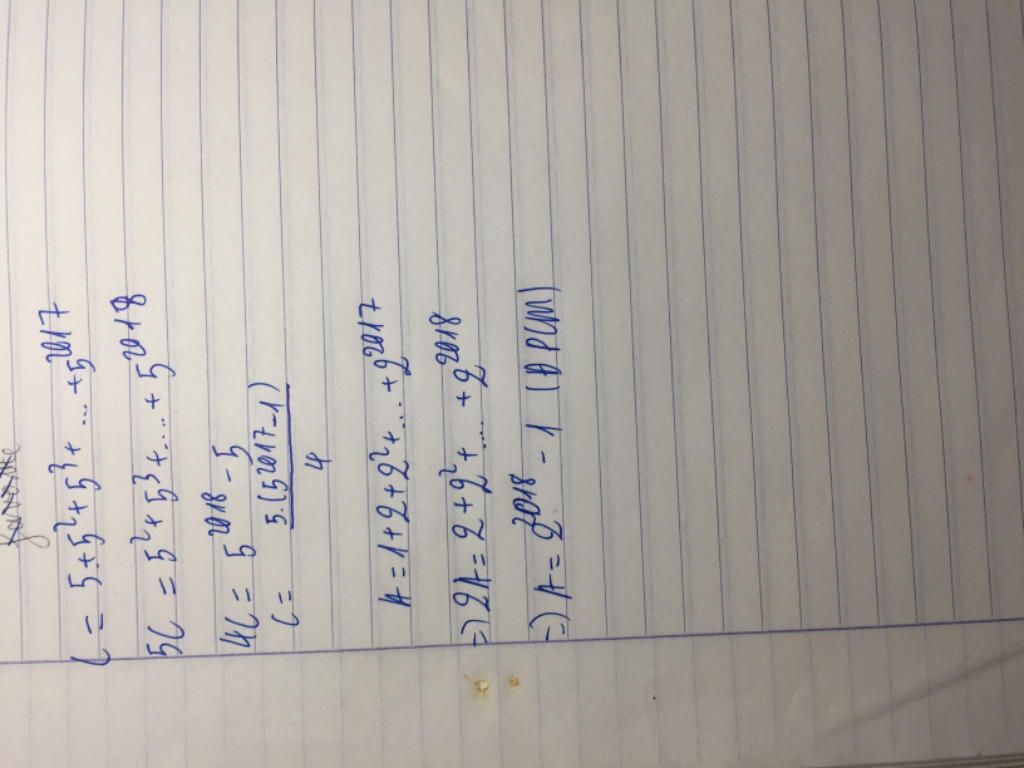 C = 5+5²+5³+ ... +5²⁰¹⁷
5C = 5²+5³+....+ 5²⁰¹⁸
4C = 5²⁰¹⁸ - 5
C = 5.(5²⁰¹⁷-1)
4
A = 1+2+2²+....+2²⁰¹⁷
=) 2A = 2+2²+....+2²⁰¹⁸
=) A = 2²⁰¹⁸ - 1 (ĐPCM)